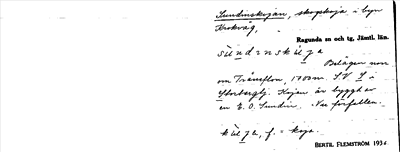 Sundinskojan, skogskoja i byn
Krokvåg,
Ragunda sn och tg, Jämtl. län.
Belägen norr
om Tränsflon, 1700 m. SV Y i
Storberget. Kojan är byggd av
en E. O. Sundin. Nu förfallen.
f. = koja.
BERTIL FLEMSTRÖM 1935